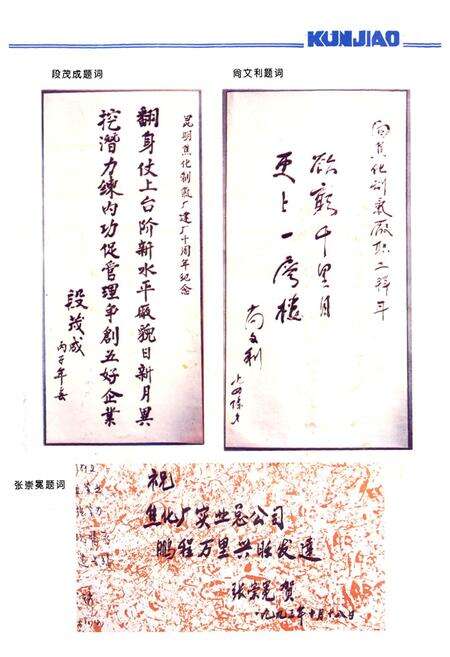 KUNJIAO
段茂成题词
尚文利题词
昆明焦化制气厂建厂十周年纪念
翻身仗上台阶新水平厰貌日新月異
挖潜力練内功促管理争創五好企業
段茂成
丙子年冬
向焦化制氣厰职工拜年
欲窮千里目
更上一层樓
尚文利
张崇冕题词
祝
焦化厂实业总公司
鹏程万里兴旺发達
张崇冕 贺
一九九三年十月十八日